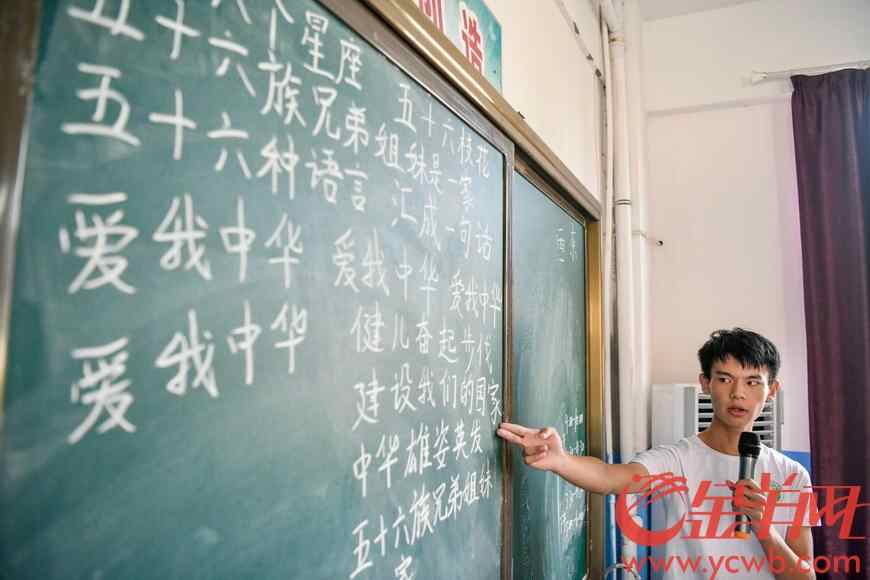 造
五十六个星座 五十六枝花
五十六族兄弟 姐妹是一家
五十六种语言 汇成一句话
爱我中华 爱我中华 爱我中华
爱我中华 健儿奋起步伐
建设我们的国家
中华雄姿英发
五十六族兄弟姐妹
金羊网
www.ycwb.com